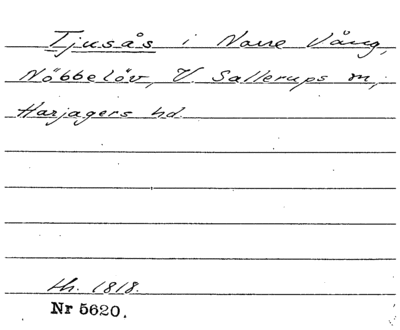 Tjusås i Norre Vång,
Nöbbelöv, V. Sallerups sn,
Harjagers hd.
th. 1818.
Nr 5620.